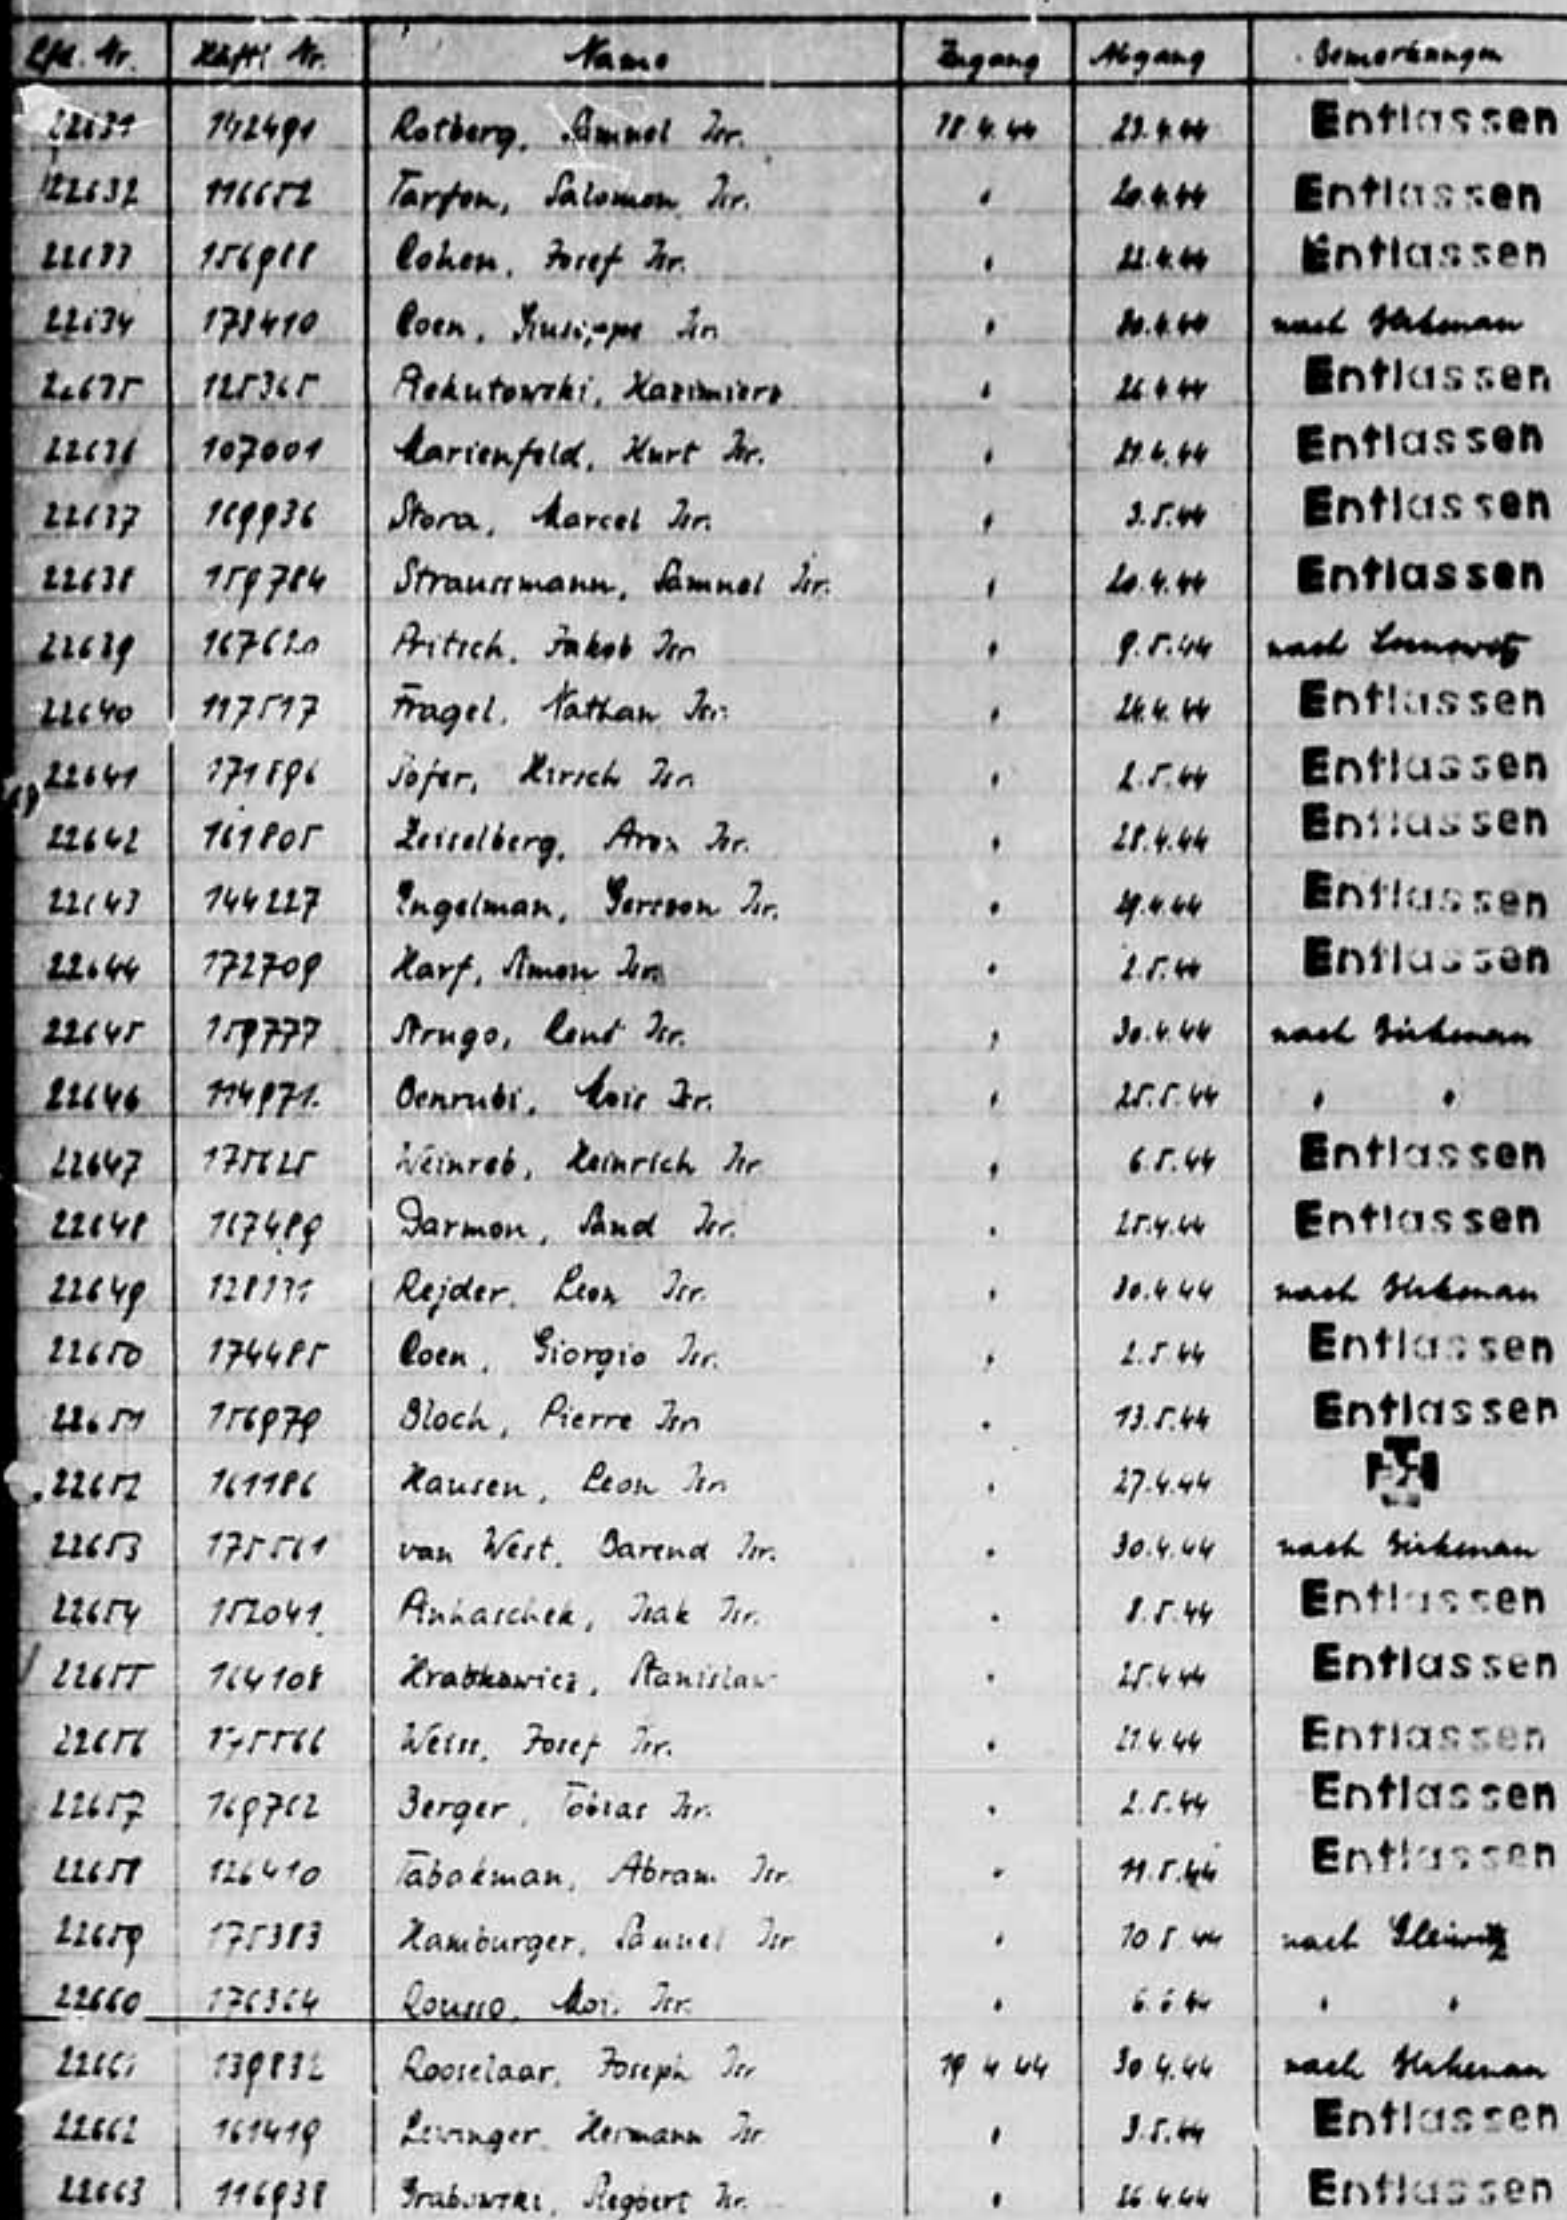 Lfd. Nr. Häftl. Nr. Name Zugang Abgang Bemerkungen
22631 142491 Rotberg, Samuel Isr. 18.4.44 29.4.44 Entlassen
22632 116652 Tarfon, Salomon Isr. " 20.4.44 Entlassen
22633 156988 Cohen, Josef Isr. " 22.4.44 Entlassen
22634 173410 Coen, Giuseppe Isr. " 30.4.44 nach Birkenau
22635 125365 Piekutowski, Kazimierz " 26.4.44 Entlassen
22636 107001 Marienfeld, Kurt Isr. " 29.4.44 Entlassen
22637 169936 Stora, Marcel Isr. " 3.5.44 Entlassen
22638 159784 Straussmann, Samuel Isr. " 20.4.44 Entlassen
22639 167620 Pritsch, Jakob Isr. " 9.5.44 nach
22640 117517 Fragel, Nathan Isr. " 24.4.44 Entlassen
22641 171896 Sofer, Hirsch Isr. " 2.5.44 Entlassen
22642 161805 Zeisselberg, Aron Isr. " 28.4.44 Entlassen
22643 144227 Engelman, Gerszon Isr. " 29.4.44 Entlassen
22644 172709 Harf, Simon Isr. " 2.5.44 Entlassen
22645 159777 Strugo, Isr. " 30.4.44 nach Birkenau
22646 114971 Benrubi, Moir Isr. " 25.5.44 " "
22647 175625 Weinreb, Heinrich Isr. " 6.5.44 Entlassen
22648 167489 Darmon, Isr. " 25.4.44 Entlassen
22649 Rejder, Leon Isr. " 30.4.44 nach Birkenau
22650 174485 Coen, Giorgio Isr. " 2.5.44 Entlassen
22651 156979 Bloch, Pierre Isr. " 13.5.44 Entlassen
22652 161186 Hausen, Leon Isr. " 27.4.44
22653 175561 van West, Barend Isr. " 30.4.44 nach Birkenau
22654 152041 Pinhaschek, Isak Isr. " 8.5.44 Entlassen
22655 164108 Hrabkowicz, Stanislaw " 25.4.44 Entlassen
22656 175566 Weiss, Josef Isr. " 21.4.44 Entlassen
22657 169762 Berger, Tobias Isr. " 2.5.44 Entlassen
22658 126410 Tabakman, Abram Isr. " 11.5.44 Entlassen
22659 175383 Hamburger, Samuel Isr. " 10.5.44 nach Gleiwitz
22660 176364 Rousso, Isr. " 6.6.44 " "
22661 139832 Rooselaar, Joseph Isr. 19.4.44 30.4.44 nach Birkenau
22662 161419 Lewinger Hermann Isr. " 3.5.44 Entlassen
22663 116938 Grabowski, Isr. " 26.4.44 Entlassen